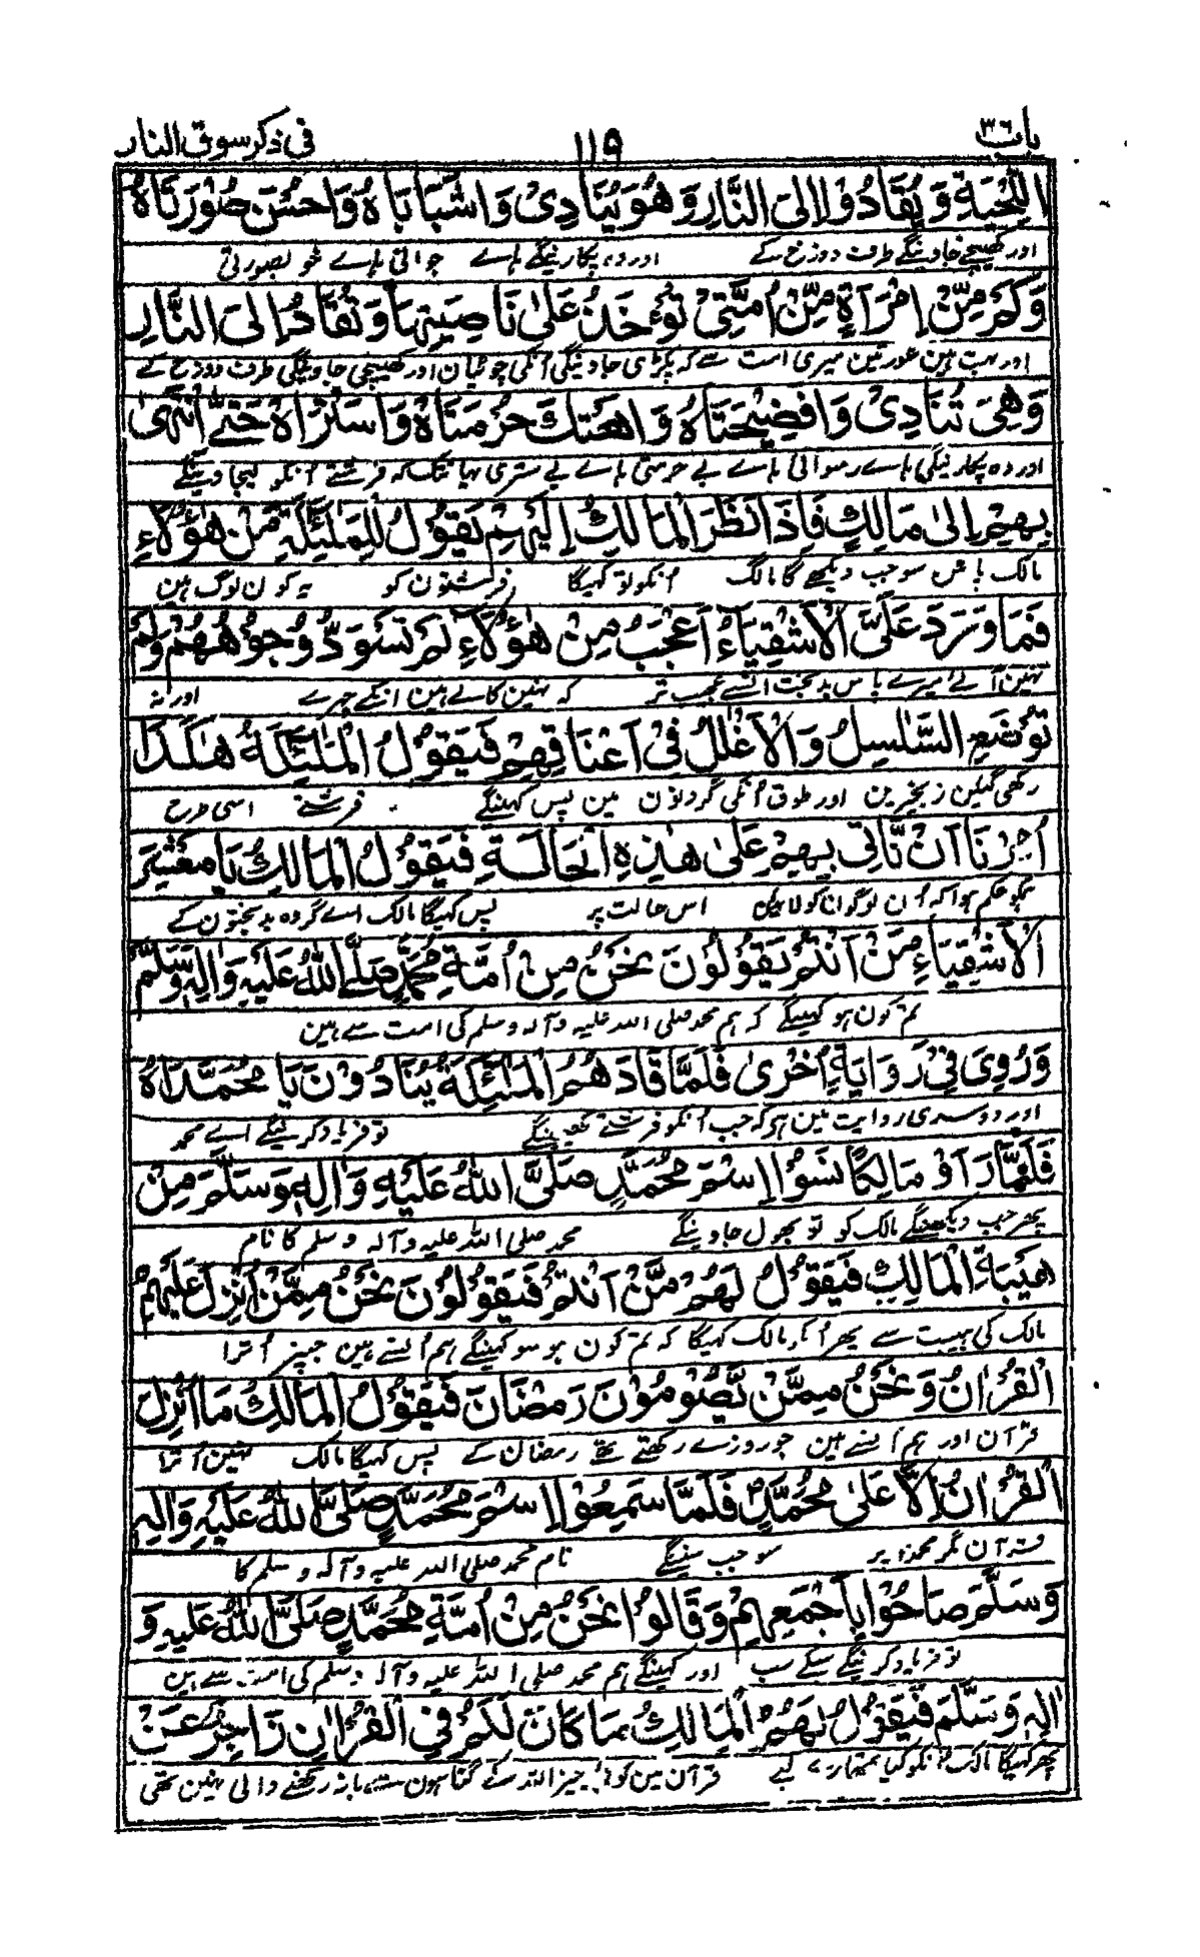 باب ٣٦
١١٩
فی ذکر سوق النار
اللِّحْيَةِ وَيُقَادُ وْا اِلَى النَّارِ وَهُوَ يُنَادِىْ وَا شَبَابَاهُ وَاحُسْنَ صُوْرَتَاهُ
اور کھینچے جاوینگے طرف دوزخ کے اور وہ پکارینگے ہاے جوانی ہاے خوبصورتی
وَكَمْ مِّنْ اِمْرَاَةٍ مِّنْ اُمَّتِىْ تُؤْخَذُ عَلٰى نَاصِيَتِهَا وَتُقَادُ اِلَى النَّارِ
اور بہت ہین عورتین میری امت سے کہ پکڑی جاوینگی اُنکی چوٹیان اور کھینچی جاوینگی طرف دوزخ کے
وَهِىَ تُنَادِىْ وَافَضِيْحَتَاهُ وَاهَتْكَ حُرْمَتَاهُ وَاسَتْرَاهُ حَتّٰى اَنْتَهٰى
اور وہ پکارینگی ہاے رسوائی ہاے بے حرمتی ہاے بے ستری یہانتک کہ فرشتے اُنکو لیجاوینگے
بِهِمْ اِلٰى مَالِكٍ فَاِذَا نَظَرَ الْمَالِكُ اِلَيْهِمْ يَقُوْلُ لِلْمَلٰئِكَةِ مَنْ هٰؤُلَاءِ
مالک پاس سو جب دیکھے گا مالک اُنکو تو کہیگا فرشتون کو یہ کون لوگ ہین
فَمَا وَرَدَ عَلَىَّ الْاَشْقِيَاءُ اَعْجَبُ مِنْ هٰؤُلَاءِ لَمْ تَسْوَدُّ وُجُوْهُهُمْ وَلَمْ
نہین آئے میرے پاس بدبخت انسے عجیب تر کہ نہین کالے ہین انکے چہرے اور نہ
تُوْضَعِ السَّلٰسِلُ وَالْاَغْلٰلُ فِىْ اَعْنَاقِهِمْ فَيَقُوْلُ الْمَلٰئِكَةُ هٰكَذَا
رکھی گئین زنجیرین اور طوق اُنکی گردنون مین پس کہینگے فرشتے اسی طرح
اُمِرْنَا اَنْ نَّاْتِىَ بِهِمْ عَلٰى هٰذِهِ الْحَالَةِ فَيَقُوْلُ الْمَالِكُ يَا مَعْشَرَ
ہمکو حکم ہوا کہ اُن لوگوان کو لاوین اس حالت پر پس کہیگا مالک اے گروہ بدبختون کے
الْاَشْقِيَاءِ مَنْ اَنْتُمْ يَقُوْلُوْنَ نَحْنُ مِنْ اُمَّةِ مُحَمَّدٍ صَلَّى اللّٰهُ عَلَيْهِ وَاٰلِهٖ وَسَلَّمَ
تم کون ہو کہینگے کہ ہم محمد صلی اللہ علیہ وآلہ وسلم کی امت سے ہین
وَرُوِىَ فِىْ رَوَايَةٍ اُخْرٰى فَلَمَّا قَادَهُمُ الْمَلٰئِكَةُ يُنَادُوْنَ يَا مُحَمَّدَاهُ
اور دوسری روایت مین ہو کہ جب اُنکو فرشتے کھینچینگے تو فریاد کرینگے اے محمد
فَلَمَّا رَاَوْ مَالِكًا نَسَوْا اِسْمَ مُحَمَّدٍ صَلَّى اللّٰهُ عَلَيْهِ وَاٰلِهٖ وَسَلَّمَ مِنْ
پھر جب دیکھینگے مالک کو تو بھول جاوینگے محمد صلی اللہ علیہ وآلہ وسلم کا نام
هَيْبَةِ الْمَالِكِ فَيَقُوْلُ لَهُمْ مَّنْ اَنْتُمْ فَيَقُوْلُوْنَ نَحْنُ مِمَّنْ اُنْزِلَ عَلَيْهِمُ
مالک کی ہیبت سے پھر اُنکو مالک کہیگا کہ تم کون ہو سو کہینگے ہم اُنسے ہین جنپر اُترا
الْقُرْاٰنُ وَنَحْنُ مِمَّنْ يَّصُوْمُوْنَ رَمْضَانَ فَيَقُوْلُ الْمَالِكُ مَا اُنْزِلَ
قرآن اور ہم اُنسے ہین جو روزے رکھتے تھے رمضان کے پس کہیگا مالک نہین اُترا
الْقُرْاٰنُ اِلَّا عَلٰى مُحَمَّدٍ فَلَمَّا سَمِعُوْا اِسْمَ مُحَمَّدٍ صَلَّى اللّٰهُ عَلَيْهِ وَاٰلِهٖ
قرآن مگر محمد پر سو جب سنینگے نام محمد صلی اللہ علیہ وآلہ وسلم کا
وَسَلَّمَ صَاحُوْا بِاَجْمَعِهِمْ وَقَالُوْا نَحْنُ مِنْ اُمَّةِ مُحَمَّدٍ صَلَّى اللّٰهُ عَلَيْهِ وَ
تو فریاد کرینگے سبکے سب اور کہینگے ہم محمد صلی اللہ علیہ وآلہ وسلم کی امت سے ہین
اٰلِهٖ وَسَلَّمَ فَيَقُوْلُ لَهُمُ الْمَالِكُ مَا كَانَ لَكُمْ فِى الْقُرْاٰنِ زَاجِرٌ عَنْ
پھر کہیگا مالک اُنکو کیا تمھارے لیے قرآن مین کوئی چیز اللہ کے گناہون سے باز رکھنے والی نہین تھی